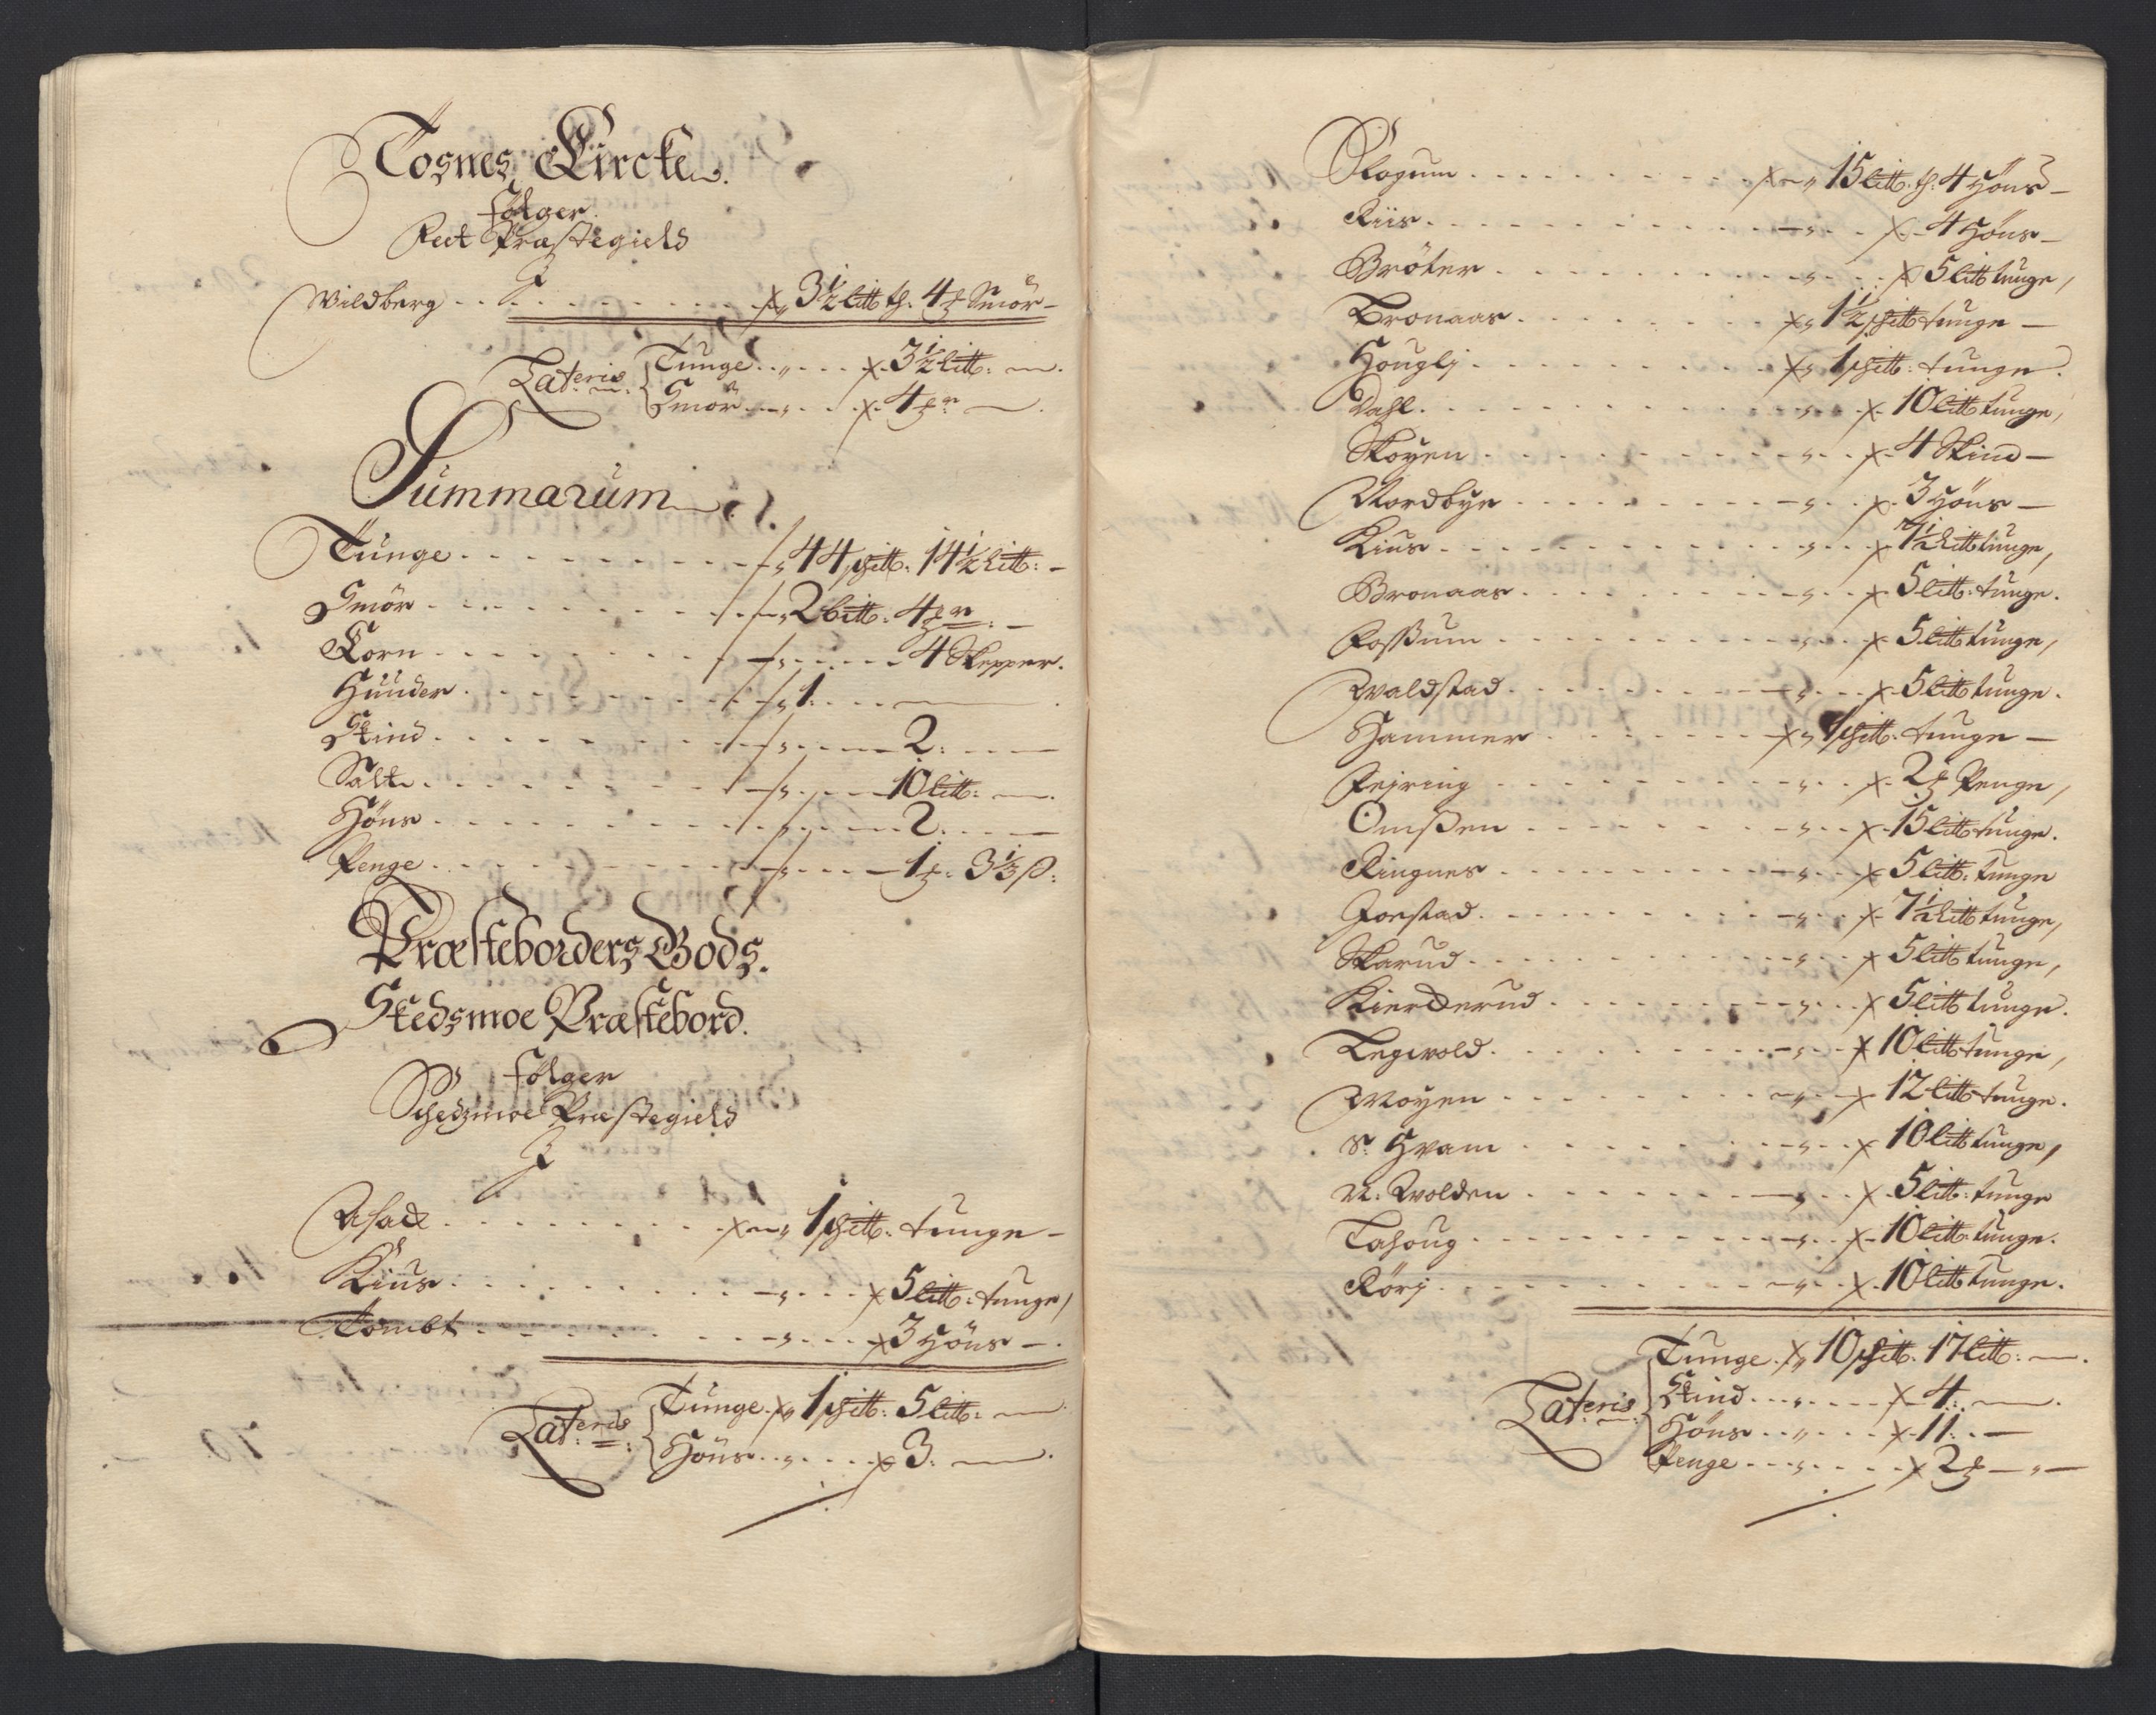 Tosnes Kircke.
følger
Feet Præstegield
Wildberg . . . . 3½ litt t. 4 Smör
Lateris Tunge . . . 3½ litt:
Smör . . . 4
Summarum
Tunge . . . . 44 schitt: 14½ litt:
Smör . . . . 2 bitt: 4
Korn . . . . 4 Skepper.
Huuder . . . . 1.
Skind . . . . 2:
Salt . . . . 10 litt:
Höns . . . . 2.
Penge . . . . 1 3⅓ β:
Præsteborders Gods.
Skedsmoe Præstebord.
følger
Schedzmoe Præstegield
Asack . . . . 1 schitt: tunge
Kius . . . . 5 litt: tunge,
Tombt . . . . 3 Höns
Lateris Tunge 1 schitt: 5 litt:
Höns . . . 3.
Skogum . . . . 15 litt. t. 4 Höns
Riis . . . . 4 Höns
Bröter . . . . 5 litt tunge,
Bronaas . . . . 1½ schitt tunge
Houglj . . . . 1 schitt: tunge.
Dahl . . . . 10 litt tunge,
Skoyen . . . . 4 Skind
Nordbye . . . . 3 Höns
Kius . . . . 7½ litt tunge,
Bronaas . . . . 5 litt: tunge.
Fossum . . . . 5 litt tunge,
Waldstad . . . . 5 litt tunge.
Hammer . . . . 1 schitt: tunge
Fejring . . . . 2 Penge,
Omßen . . . . 15 litt tunge.
Ringnes . . . . 5 litt: tunge
Joestad . . . . 7½ litt tunge,
Skarud . . . . 5 litt tunge,
Kierkerud . . . . 5 litt tunge.
Legwold . . . . 10 litt tunge,
Moyen . . . . 12 litt tunge.
S: Hvam . . . . 10 litt tunge,
N: Wolden . . . . 5 litt: tunge
Tahoug . . . . 10 litt tunge.
Rörj . . . . 10 litt tunge.
Lateris Tunge 10 schitt. 17 litt:
Skind . . . 4.
Höns . . . 11.
Penge . . . 2